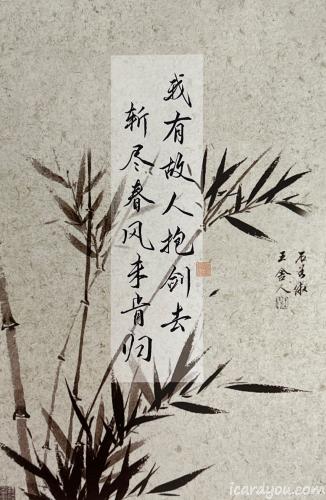 我有故人抱剑去
斩尽春风未肯归
王舍人
icardyou.com